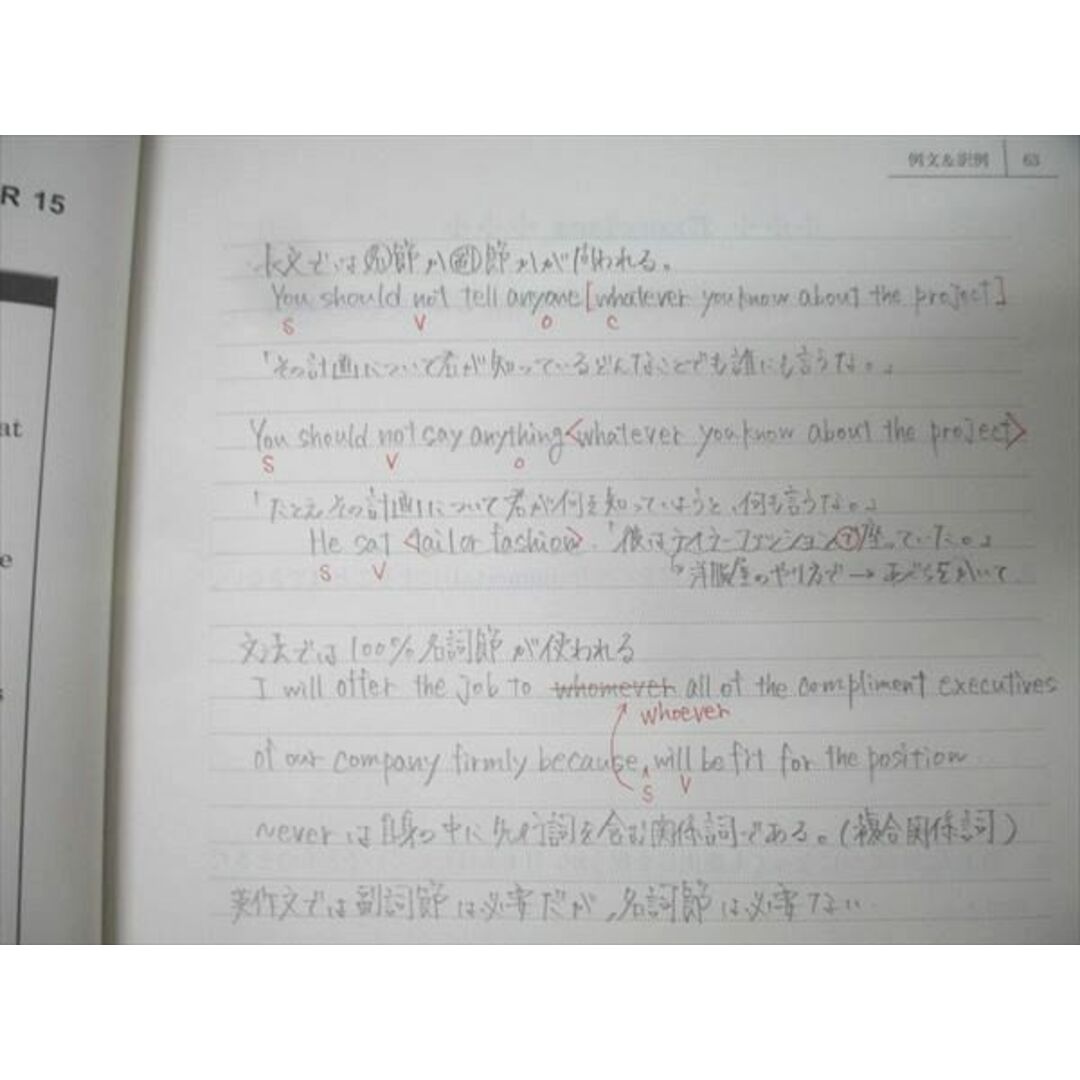 R 15
at
e
例文&訳例 63
長文では名節か副節かが問われる。
You should not tell anyone [whatever you know about the project]
S V O C
「その計画について君が知っているどんなことでも誰にも言うな。」
You should not say anything <whatever you know about the project>
S V O
「たとえその計画について君が何を知っていようと、何も言うな。」
He sat <tailor fashion>. 「彼はテイラーファッションで座っていた。」
S V
洋服屋のやり方で → あぐらをかいて
文法では100%名詞節が使われる
I will offer the job to whomever all of the compliment executives
whoever
of our company firmly because, will be fit for the position
S V
~everは自身の中に先行詞を含む関係詞である。(複合関係詞)
英作文では副詞節は必要だが、名詞節は必要ない